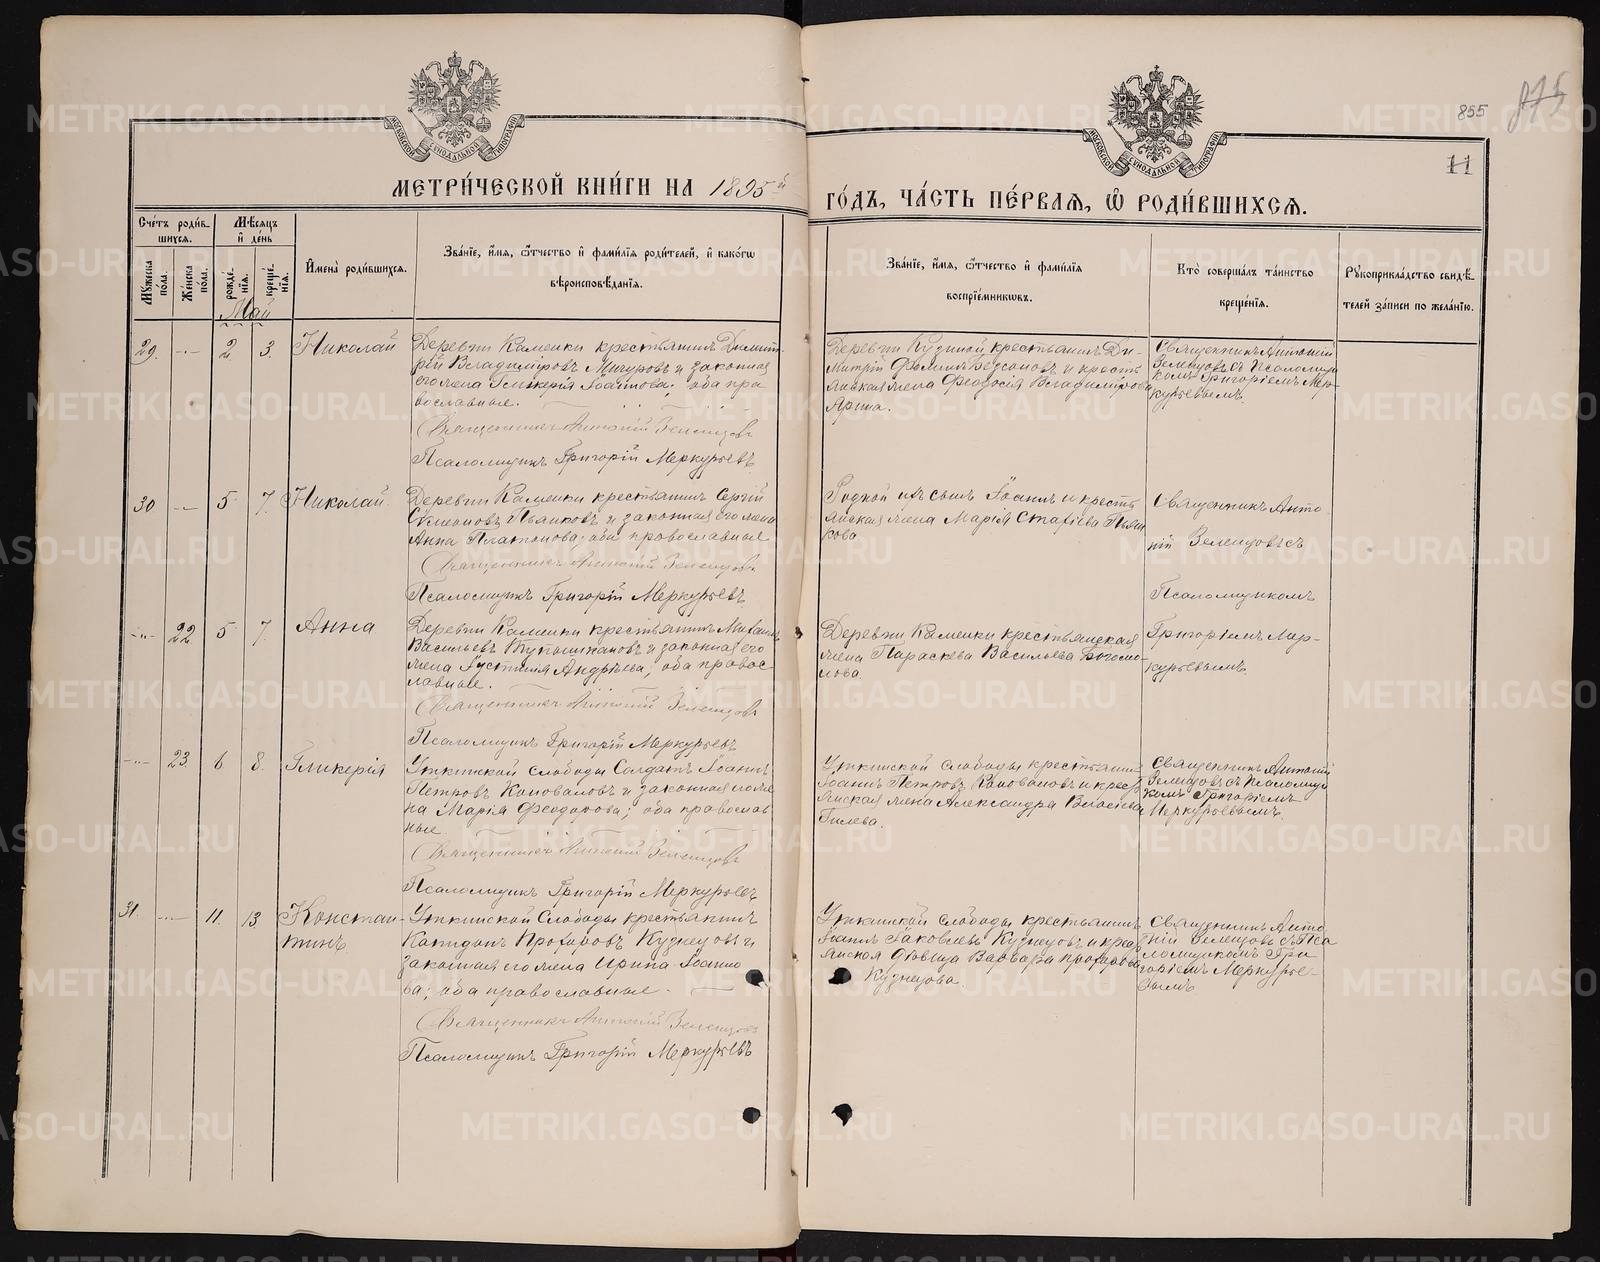 855
875
11
МОСКОВСКОЙ СУНОДАЛЬНОЙ ТИПОГРАФІИ
МОСКОВСКОЙ СУНОДАЛЬНОЙ ТИПОГРАФІИ
МЕТРИ́ЧЕСКОЙ КНИ́ГИ НА 1895й
ГО́ДЪ, ЧА́СТЬ ПЕ́РВАѦ, Ѽ РОДИ́ВШИХСѦ.
Сче́тъ роди́в-
шихся.
Мѣ́сяцъ
и҆ де́нь
Мужеска пола.
Женска пола.
рожде́нія.
креще́нія.
И҆мена̀ роди́вшихся.
Зва́ніе, и҆́мя, ѻ҆́тчество и҆ фами́лія роди́телей, и҆ како́гѡ
вѣроисповѣ́данія.
Зва́ніе, и҆́мя, ѻ҆́тчество и҆ фами́лія
воспріе́мниковъ.
Кто̀ соверша́лъ та́инство
креще́нія.
Рꙋкоприкла́дство свидѣ́-
телей за́писи по жела́нію.
Май
29. -..- 2. 3. Николай
Деревни Каменки крестьянинъ Димит-
рій Владиміровъ Мичуровъ и законная
его жена Гликерія Іоаннова; оба пра
вославные.
Священникъ Антоній Зеленцовъ
Псаломщикъ Григорій Меркурьевъ
Деревни Кузиной крестьянинъ Ди-
митрій Фоминъ Бѣдсоновъ и кресть
янская жена Феодосія Владимірова
Ярина.
Священникъ Антоній
Зеленцовъ съ Псаломщи
комъ Григоріемъ Мер-
курьевымъ.
30 -..- 5 7. Николай
Деревни Каменки крестьянинъ Сергій
Сѵмеоновъ Пьянковъ и законная его жена
Анна Платонова; оба православные
Священникъ Антоній Зеленцовъ
Псаломщикъ Григорій Меркурьевъ
Родной ихъ сынъ Іоаннъ и кресть
янская жена Марія Стафіева Пьян
кова
Священникъ Анто
ній Зеленцовъ съ
Псаломщикомъ
Григоріемъ Мер-
курьевымъ.
-..- 22 5 7. Анна
Деревни Каменки крестьянинъ Михаилъ
Васильевъ и законная его
жена Іустинія Андрѣева; оба правос
лавные.
Священникъ Антоній Зеленцовъ
Псаломщикъ Григорій Меркурьевъ
Деревни Каменки крестьянская
жена Параскева Васильева Богомо-
лова.
-..- 23. 6 8. Гликерія
Уткинской слободы Солдатъ Іоаннъ
Петровъ Коноваловъ и законная его же
на Марія Феодорова; оба православ
ные.
Священникъ Антоній Зеленцовъ
Псаломщикъ Григорій Меркурьевъ
Уткинской слободы крестьянинъ
Іоаннъ Петровъ Коноваловъ и крест
янская жена Александра Власіева
Гилева.
Священникъ Антоній
Зеленцовъ съ Псаломщи
комъ Григоріемъ
Меркурьевымъ.
31. -..- 11. 13. Констан-
тинъ.
Уткинской Слободы крестьянинъ
Капидонъ Прохоровъ Кузнецовъ и
законная его жена Ирина Іоанно
ва; оба православные.
Священникъ Антоній Зеленцовъ
Псаломщикъ Григорій Меркурьевъ
Уткинской слободы крестьянинъ
Іоаннъ Іаковлевъ Кузнецовъ и крест
янская дѣвица Варвара Прохорова
Кузнецова.
Священникъ Анто
ній Зеленцовъ съ Пса
ломщикомъ Гри
горіемъ Меркурье-
вымъ